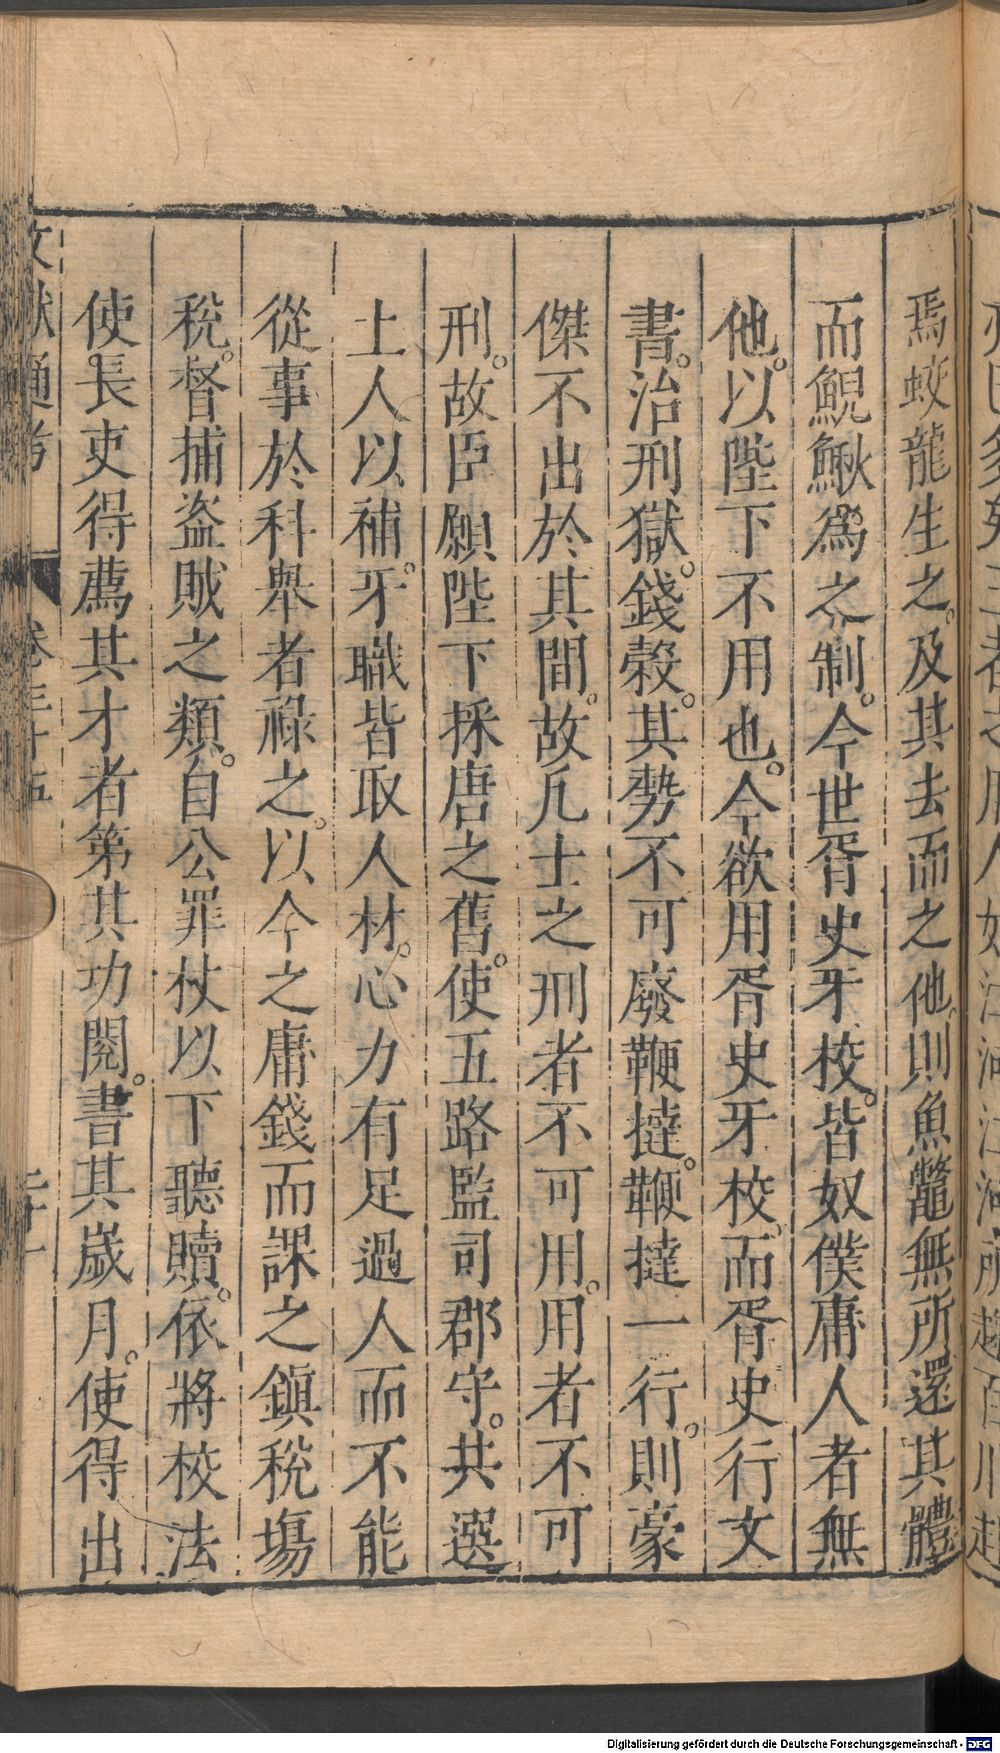 焉蛟龍生之。及其去而之他。則魚鼈無所還其體
而鯢鰍爲之制。今世胥史牙校。皆奴僕庸人者無
他。以陛下不用也。今欲用胥史牙校。而胥史行文
書。治刑獄。錢榖。其勢不可廢鞭撻。鞭撻一行。則豪
傑不出於其間。故凡士之刑者不可用。用者不可
刑。故臣願陛下採唐之舊。使五路監司郡守。共選
士人以補。牙職皆取人材。心力有足過人而不能
從事於科舉者祿之。以今之庸錢而課之鎭稅塲
稅。督捕盜賊之類。自公罪杖以下聽贖。依將校法
使。長吏得薦其才者第其功閥。書其歲月。使得出
文獻通考 卷三十五 三十一
Digitalisierung gefördert durch die Deutsche Forschungsgemeinschaft - DFG